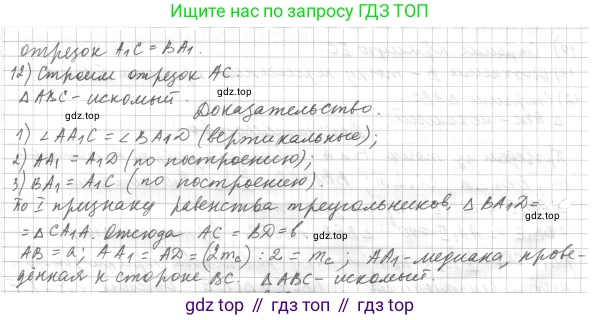 Ищите нас по запросу ГДЗ ТОП
отрезок A₁C = BA₁.
12) Строим отрезок AC.
△ABC - искомый.
Доказательство.
1) ∠AA₁C = ∠BA₁D (вертикальные);
2) AA₁ = A₁D (по построению);
3) BA₁ = A₁C (по построению).
По I признаку равенства треугольников, △BA₁D =
= △CA₁A. Отсюда AC = BD = b.
AB = a; AA₁ = AD = (2m_c) : 2 = m_c; AA₁ - медиана, прове-
дённая к стороне BC. △ABC - искомый.
gdz.top // гдз.top // гдз.топ